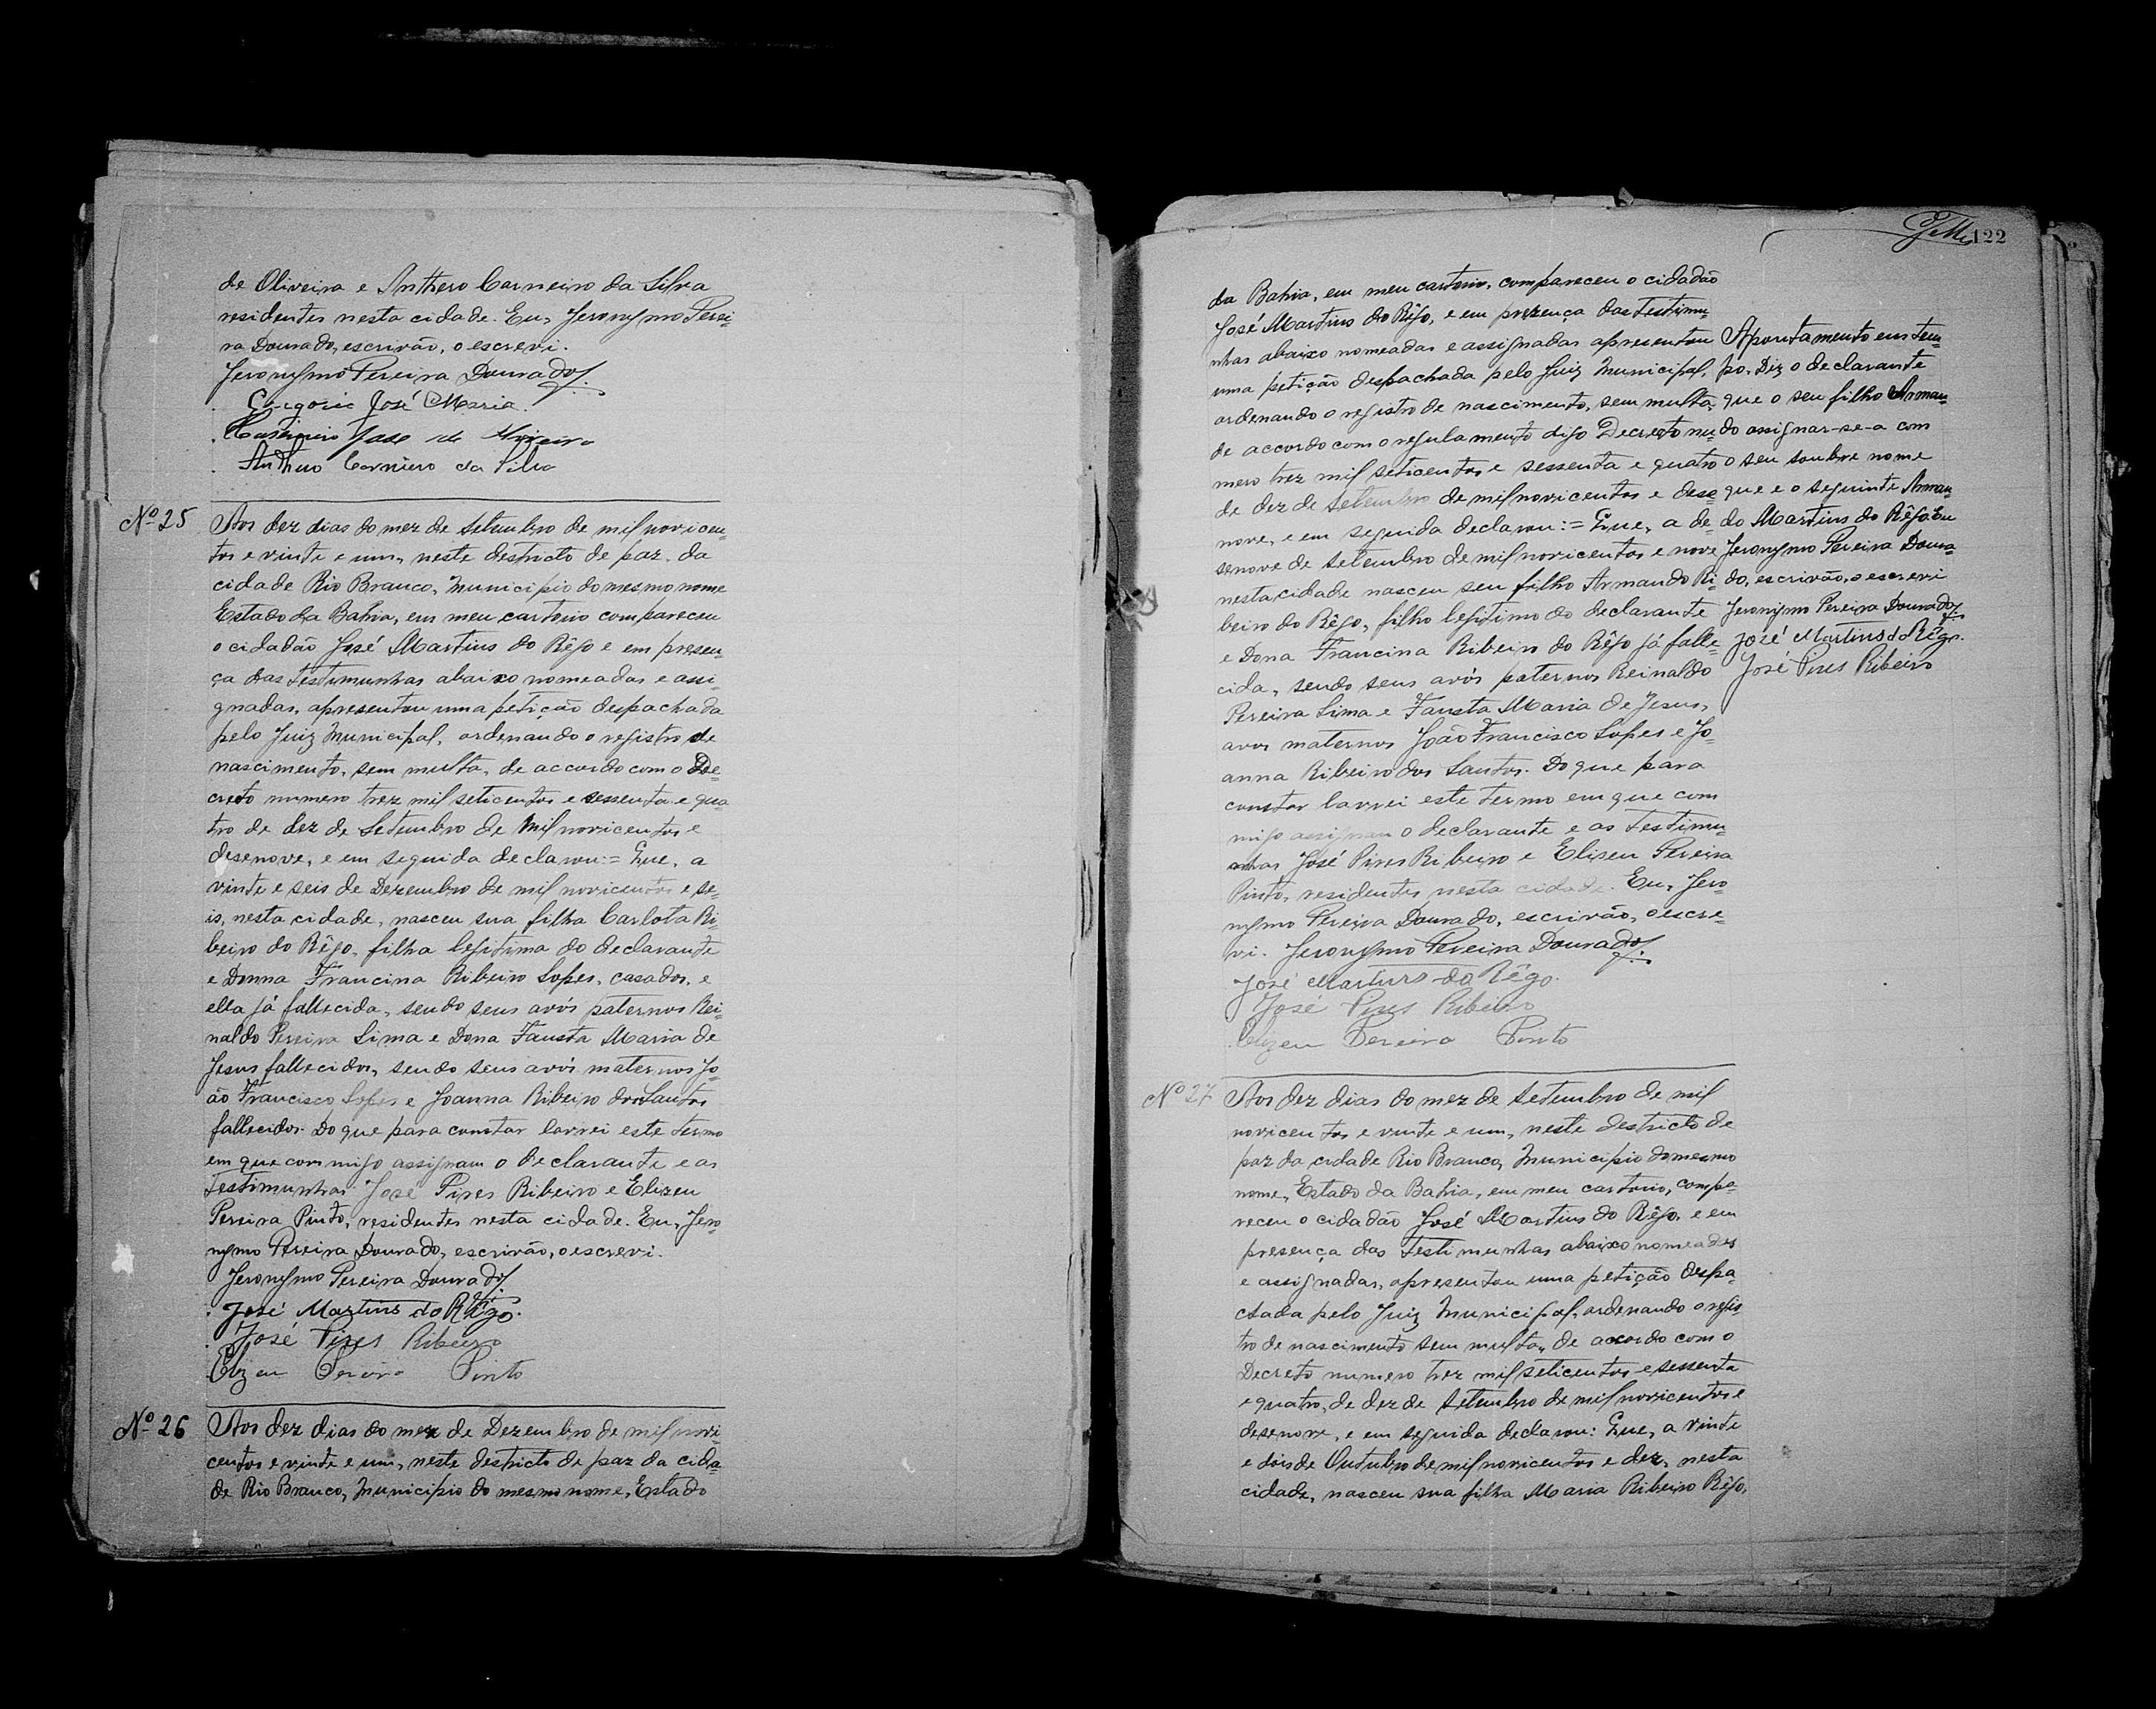 de Oliveira e Anthero Carneiro da Silva
residentes nesta cidade. Eu, Jeronymo Perei-
ra Dourado, escrivão, o escrevi.
Jeronymo Pereira Dourado
Gregorio José Maria.
José de Oliveira
Anthero Carneiro da Silva
Nº 25
Aos dez dias do mez de Setembro de mil novicen-
tos e vinte e um, neste destricto de paz da
cidade Rio Branco, Municipio do mesmo nome
Estado da Bahia, em meu cartorio compareceu
o cidadão José Martins do Rêgo e em presen-
ça das testimunhas abaixo nomeadas e assi-
gnadas, apresentou uma petição despachada
pelo Juiz Municipal, ordenando o registro de
nascimento, sem multa, de accordo com o De-
creto numero trez mil seticentos e sessenta e qua-
tro de dez de Setembro de mil novicentos e
desenove, e em seguida declarou:= Que, a
vinte e seis de Dezembro de mil novicentos e se-
is, nesta cidade, nasceu sua filha Carlota Ri-
beiro do Rêgo, filha legitima do declarante
e Donna Francina Ribeiro Lopes, casados, e
ella já fallecida, sendo seus avós paternos Rei-
naldo Pereira Lima e Dona Fausta Maria de
Jesus fallecidos, sendo seus avós maternos Jo-
ão Francisco Lopes e Joanna Ribeiro dos Santos
fallecidos. Do que para constar lavrei este termo
em que commigo assignam o declarante e as
testimunhas José Pires Ribeiro e Elizeu
Pereira Pinto, residentes nesta cidade. Eu, Jero-
nymo Pereira Dourado, escrivão, o escrevi.
Jeronymo Pereira Dourado
José Martins do Rêgo.
José Pires Ribeiro
Elizeu Pereira Pinto
Nº 26
Aos dez dias do mez de Dezembro de mil novi-
centos e vinte e um, neste destricto de paz da cida-
de Rio Branco, Municipio do mesmo nome, Estado
122
da Bahia, em meu cartorio, compareceu o cidadão
José Martins do Rêgo, e em prezença das testimu-
nhas abaixo nomeadas e assignadas apresentou
uma petição despachada pelo Juiz Municipal,
ordenando o registro de nascimento, sem multa,
de accordo com o regulamento digo Decreto nu-
mero trez mil seticentos e sessenta e quatro
de dez de Setembro de mil novicentos e dese-
nove, e em seguida declarou:= Que, a de-
senove de Setembro de mil novicentos e nove
nesta cidade nasceu seu filho Armando Ri-
beiro do Rêgo, filho legitimo do declarante
e Dona Francina Ribeiro do Rêgo já falle-
cida, sendo seus avós paternos Reinaldo
Pereira Lima e Fausta Maria de Jesus,
avos maternos João Francisco Lopes e Jo-
anna Ribeiro dos Santos. Do que para
constar lavrei este termo em que com
migo assignam o declarante e as testimu-
nhas José Pires Ribeiro e Elizeu Pereira
Pinto, residentes nesta cidade. Eu, Jero-
nymo Pereira Dourado, escrivão, o escre-
vi. Jeronymo Pereira Dourado
José Martins do Rêgo.
José Pires Ribeiro
Elizeu Pereira Pinto
Apontamento em tem-
po. Diz o declarante
que o seu filho Arman-
do assignar-se-a com
o seu soubre nome
que e o seguinte Arman-
do Martins do Rêgo. Eu
Jeronymo Pereira Doura-
do, escrivão, o escrevi
Jeronymo Pereira Dourado
José Martins d Rêgo.
José Pires Ribeiro
Nº 27
Aos dez dias do mez de Setembro de mil
novicentos e vinte e um, neste destricto de
paz da cidade Rio Branco, Municipio do mesmo
nome, Estado da Bahia, em meu cartorio, compa-
receu o cidadão José Martins do Rêgo, e em
presença das testimunhas abaixo nomeadas
e assignadas, apresentou uma petição despa-
chada pelo Juiz Municipal, ordenando o regis-
tro de nascimento sem multa, de accordo com o
Decreto numero trez mil seticentos e sessenta
e quatro, de dez de Setembro de mil novicentos e
desenove, e em seguida declarou: Que, a vinte
e dois de Outubro de mil novicentos e dez, nesta
cidade, nasceu sua filha Maria Ribeiro Rêgo,